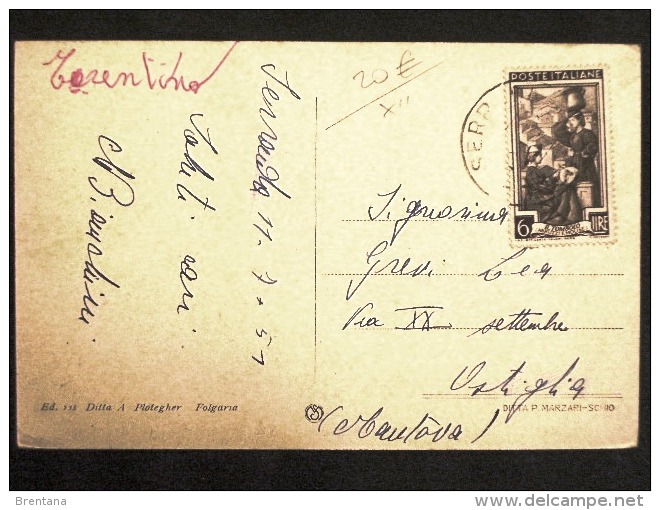 Trentino
Serrada 11.7.51
Saluti cari
20 €
XII
SERR
POSTE ITALIANE
6 LIRE
Signorina
Grevi Lea
Via XX settembre
Ostiglia
(Mantova)
Ed. 111 Ditta A Plotegher Folgaria
DITTA P. MARZARI-SCHIO
Brentana
delcampe.net